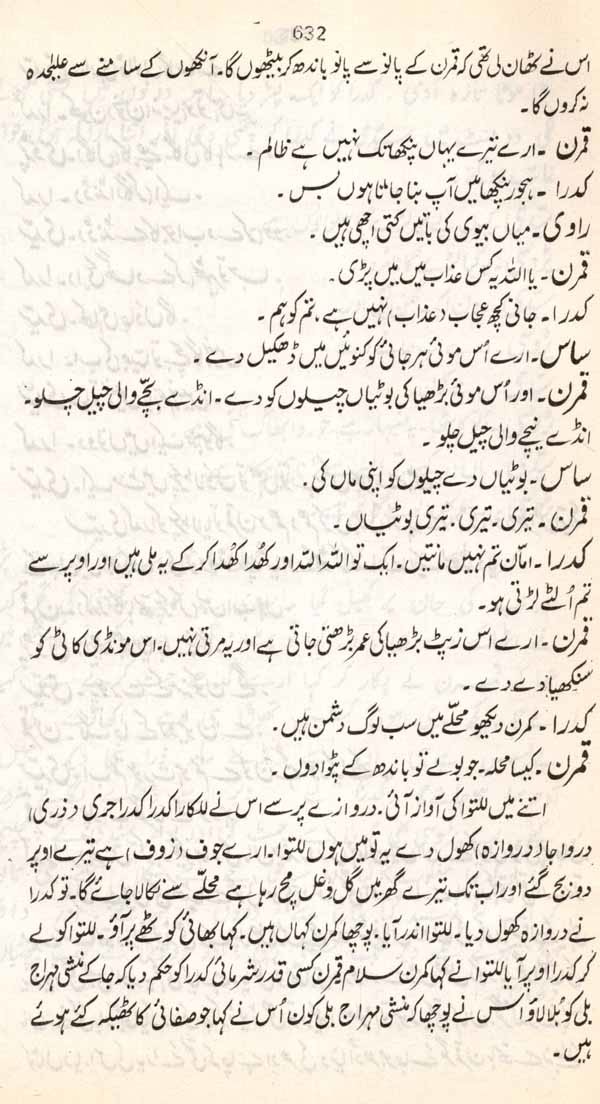 632
اس نے ٹھان لی تھی کہ قمرن کے پانو سے پانو باندھ کر بیٹھوں گا۔ آنکھوں کے سامنے سے علیٰحدہ
نہ کروں گا۔
قمرن ۔ ارے تیرے یہاں پنکھا تک نہیں ہے ظالم ۔
کدرا ۔ ہجور پنکھا میں آپ بنا جاتا ہوں بس ۔
راوی ۔ میاں بیوی کی باتیں کتی اچھی ہیں ۔
قمرن ۔ یا اللہ یہ کس عذاب میں میں پڑی ۔
کدرا ۔ جانی کچھ عجاب (عذاب) نہیں ہے ، تم کو ہم ۔
ساس ۔ ارے اُس موئی ہرجائی کو کنوئیں میں ڈھکیل دے ۔
قمرن ۔ اور اُس موئی بڑھیا کی بوٹیاں چیلوں کو دے ۔ انڈے بچّے والی چیل چلو ۔
انڈے بچے والی چیل چلو ۔
ساس ۔ بوٹیاں دے چیلوں کو اپنی ماں کی ۔
قمرن ۔ تیری ۔ تیری ۔ تیری بوٹیاں ۔
کدرا ۔ امّاں تم نہیں مانتیں ۔ ایک تو اللہ اللہ اور کھُدا کھُدا کر کے یہ ملی ہیں اور اوپر سے
تم اُلٹے لڑتی ہو ۔
قمرن ۔ ارے اس زیٹ بڑھیا کی عمر بڑھتی جاتی ہے اور یہ مرتی نہیں ۔ اس مونڈی کاٹی کو
سنکھیا دے دے ۔
کدرا ۔ کمرن دیکھو محلّے میں سب لوگ دشمن ہیں ۔
قمرن ۔ کیسا محلہ ۔ جو بولے تو باندھ کے پٹوا دوں ۔
اتنے میں للتوا کی آواز آئی ۔ دروازے پر سے اس نے للکارا کدرا کدرا جری (ذری)
درواجا (دروازہ) کھول دے یہ تو میں ہوں للتوا ۔ ارے جوف (زوف) ہے تیرے اوپر
دو بج گئے اور اب تک تیرے گھر میں گل و غل مچ رہا ہے محلّے سے نکالا جائے گا ۔ تو کدرا
نے دروازہ کھول دیا ۔ للتوا اندر آیا ۔ پوچھا کمرن کہاں ہیں ۔ کہا بھائی کوٹھے پر آؤ ۔ للتوا کو لے
کر کدرا اوپر آیا للتوا نے کہا کمرن سلام قمرن کسی قدر شرمائی کدرا کو حکم دیا کہ جا کے منشی مہراج
بلی کو بُلا لاؤ اس نے پوچھا کہ منشی مہراج بلی کون اُس نے کہا جو صفائی کا ٹھیکہ لئے ہوئے
ہیں ۔